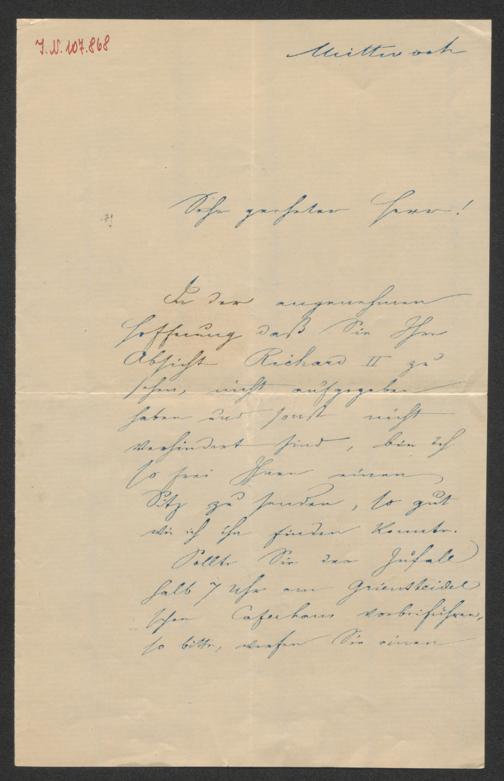 I.N. 107.868
Mittwoch
Sehr geehrter Herr!
In der angenehmen
Hoffnung daß Sie Ihre
Absicht Richard II zu
sehen, nicht aufgegeben
haben und sonst nicht
verhindert sind, bin ich
so frei Ihnen einen
Sitz zu senden, so gut
wie ich ihn finden konnte.
Sollte Sie der Zufall
halb 7 Uhr am Grienstеidl
schen Cafehaus vorbeiführen,
so bitte, werfen Sie einen